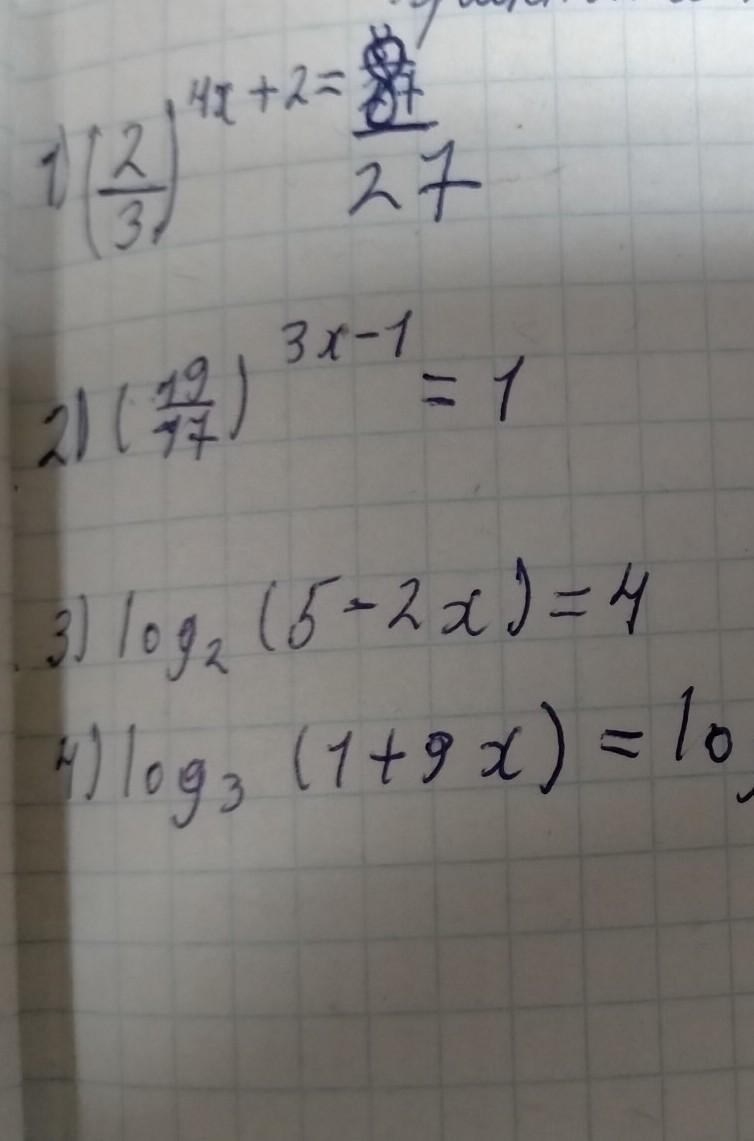 1) (2/3)^4x+2 = 8/27
2) (19/17)^3x-1 = 1
3) log₂ (5-2x) = 4
4) log₃ (1+9x) = lo